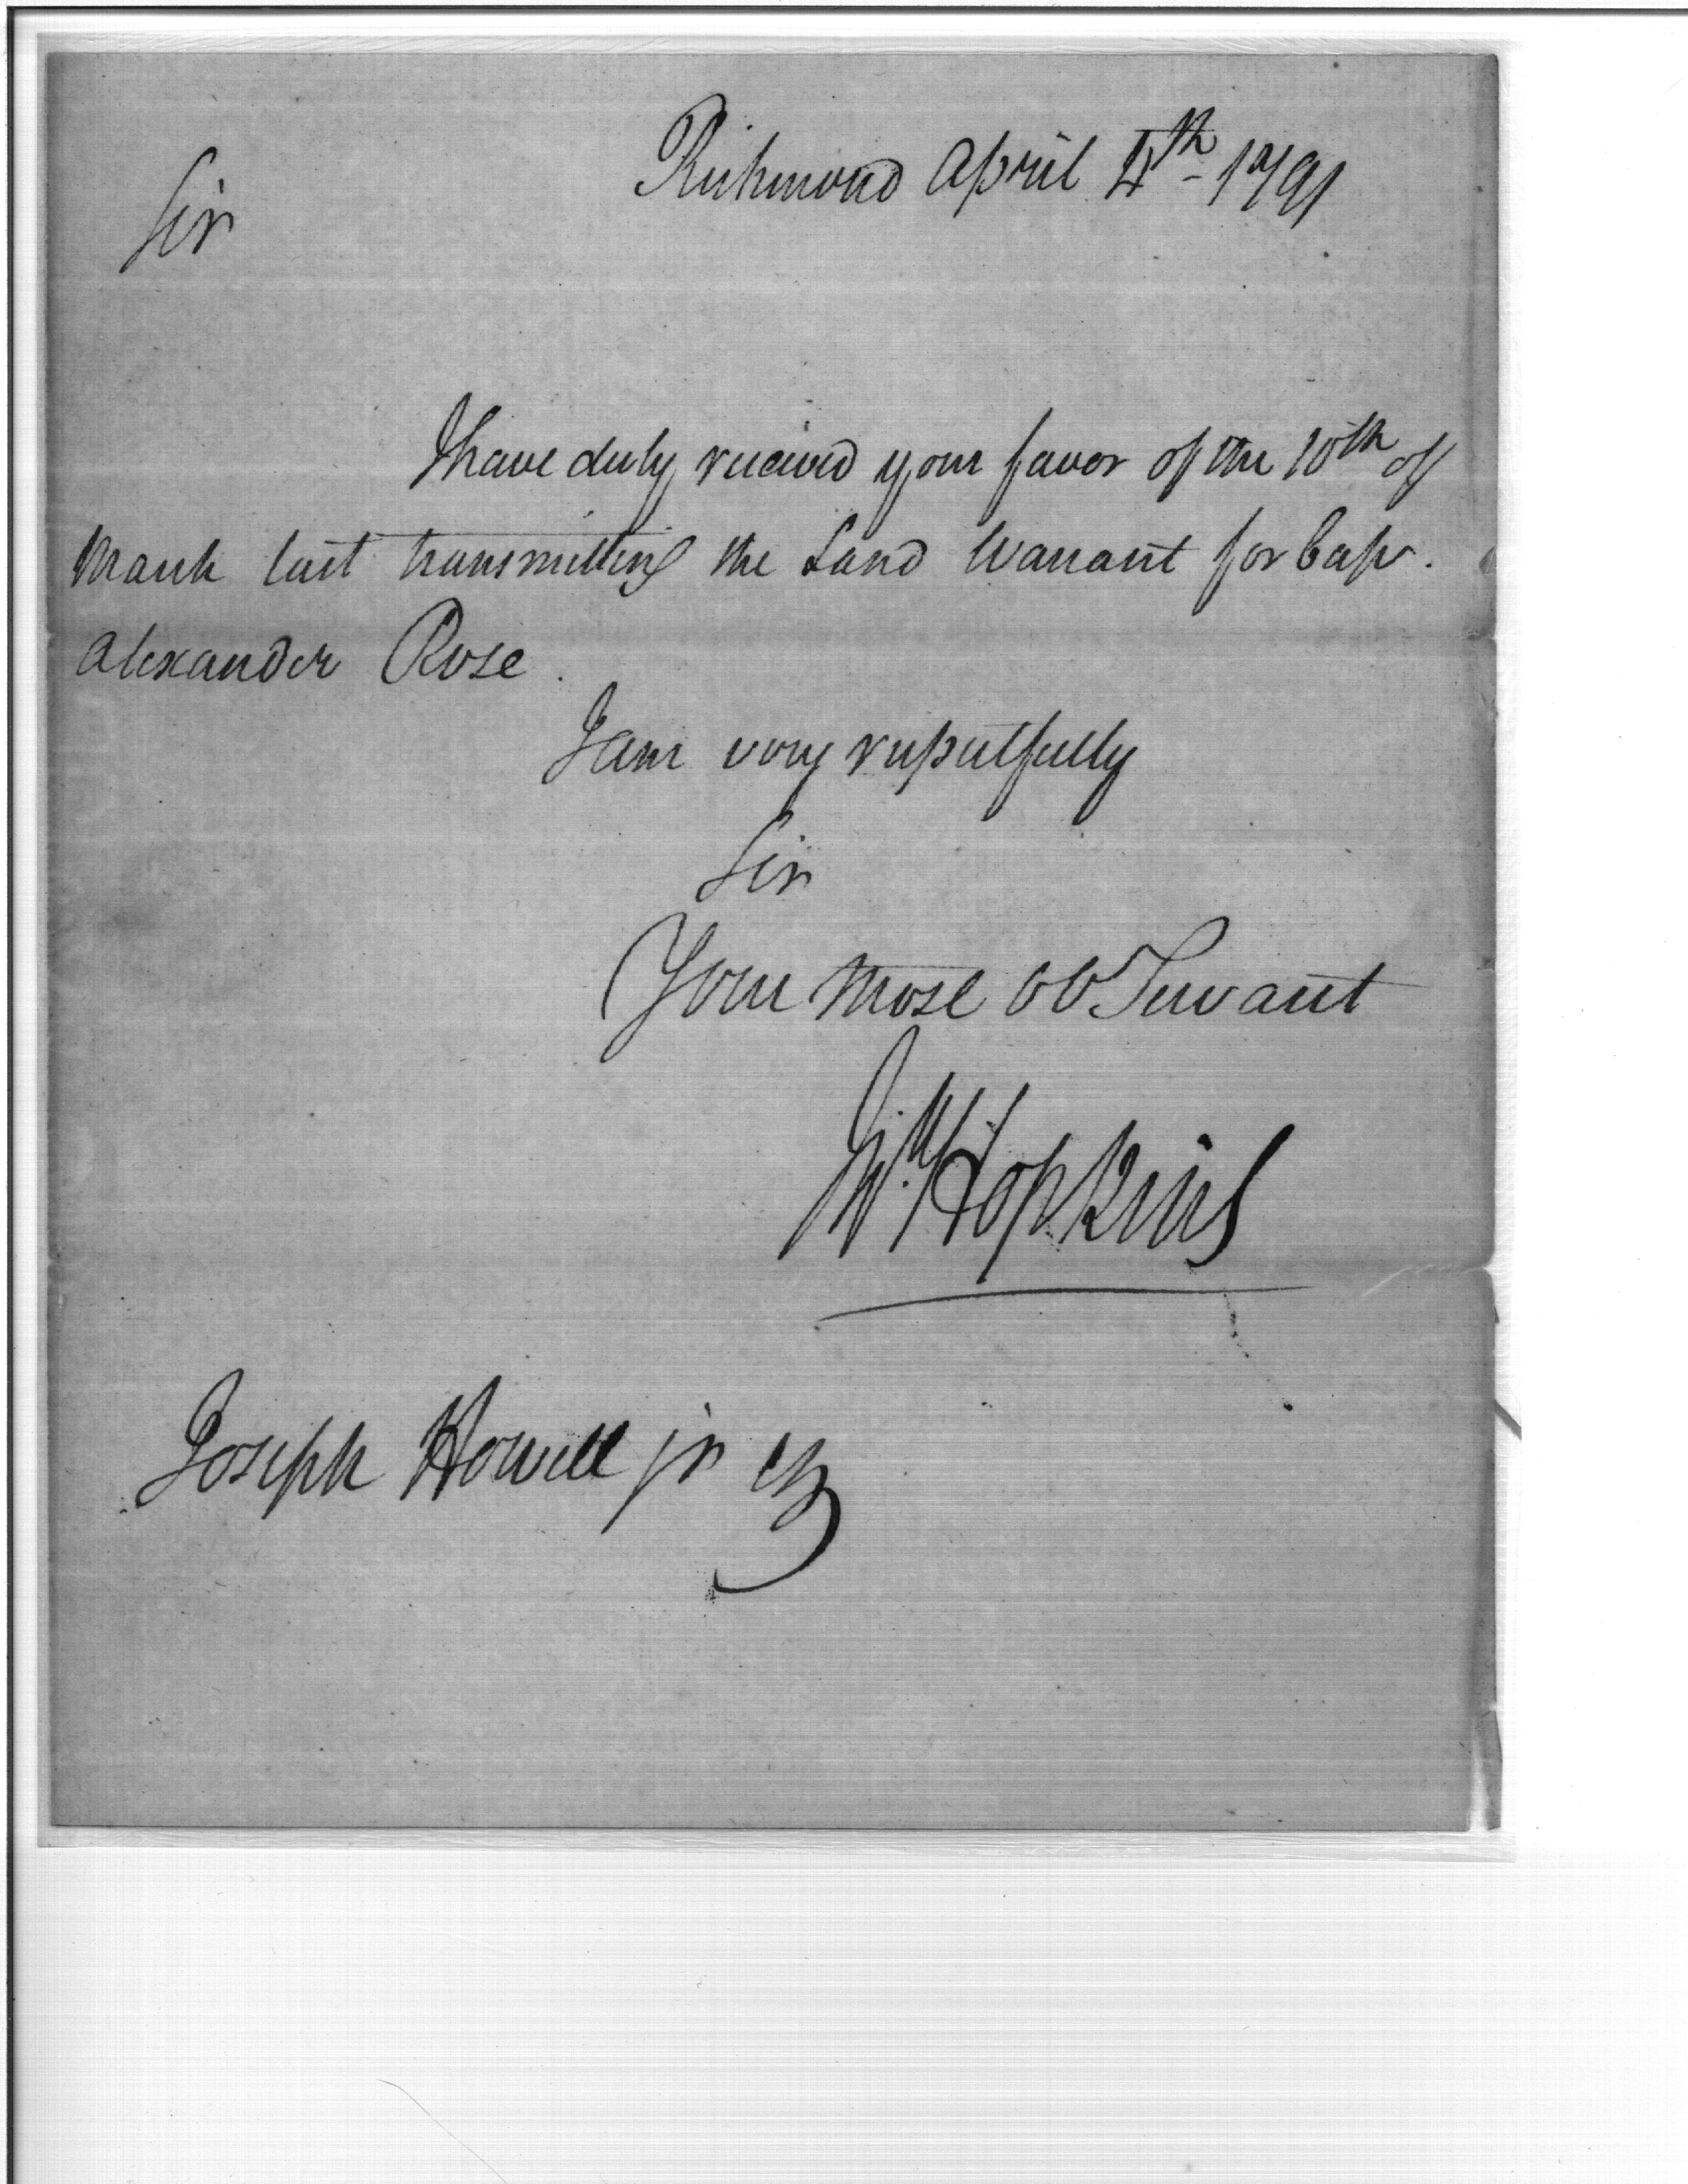 Richmond April 4th - 1791
Sir
I have duly received your favor of the 10th of
March last transmitting the Land Warrant for Cap.
Alexander Rose.
I am very respectfully
Sir
Your most ob Servant
Hopkins
Joseph Howell jr